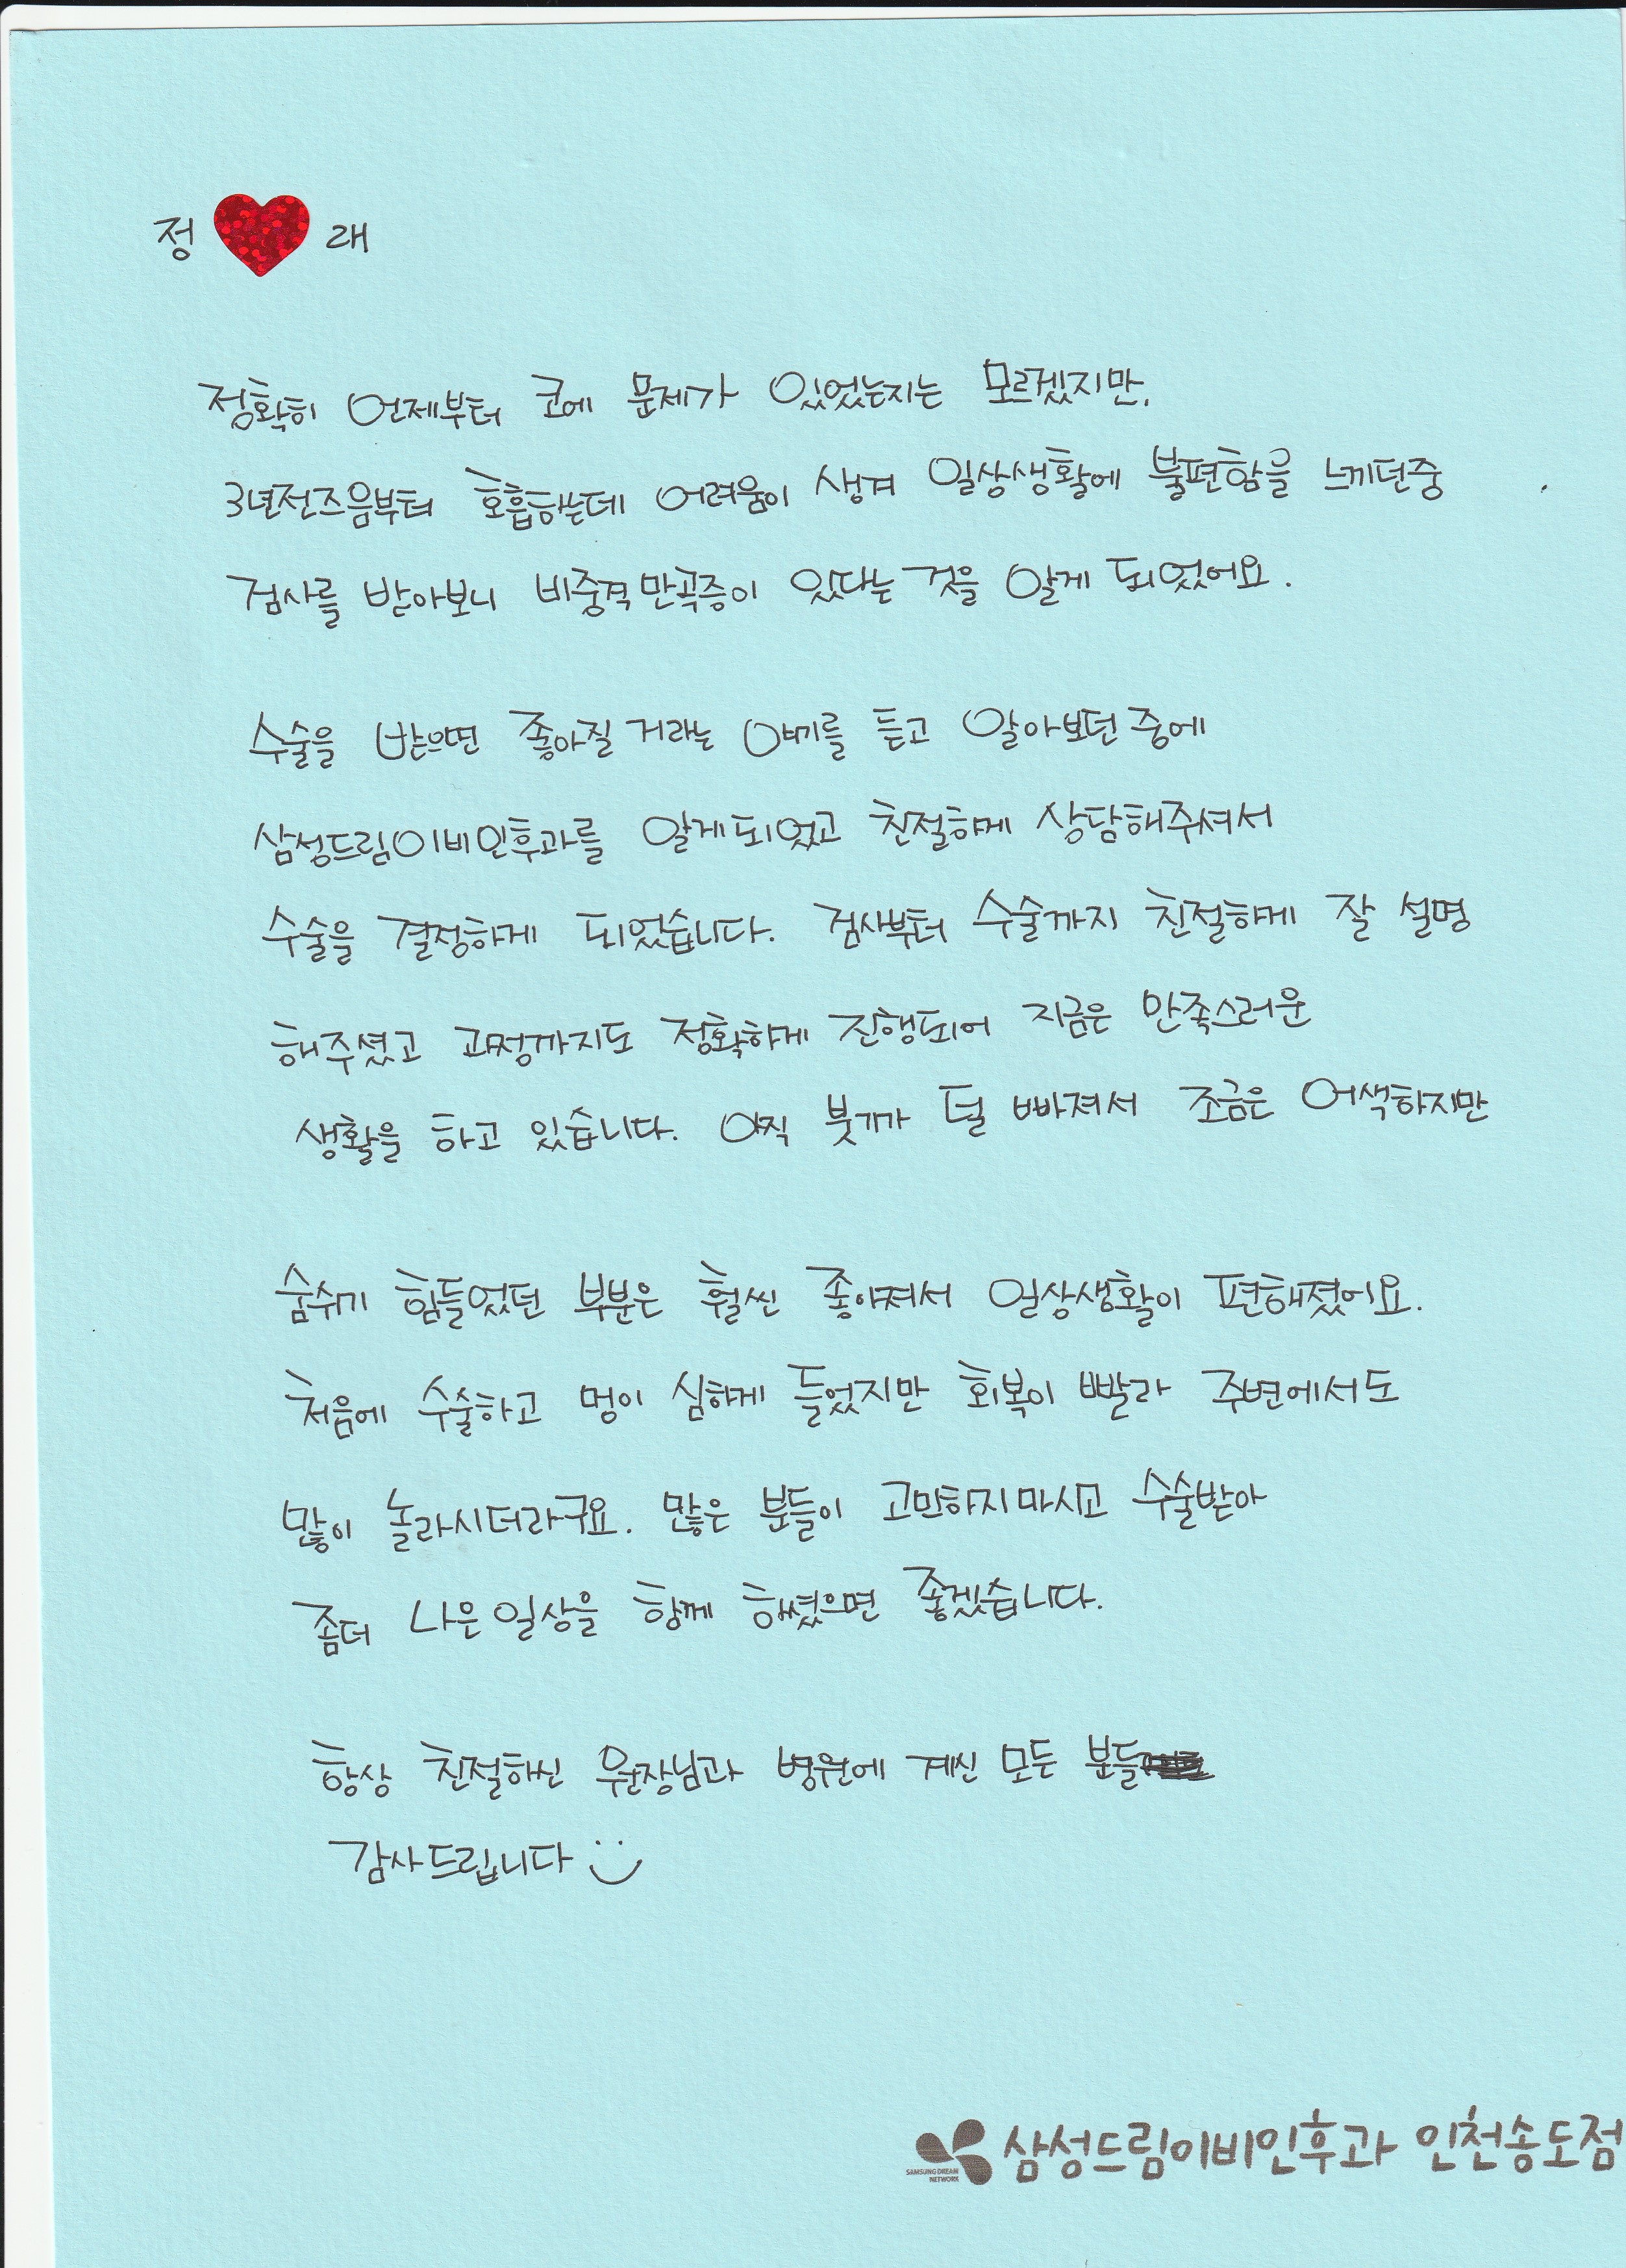 정 래
정확히 언제부터 코에 문제가 있었는지는 모르겠지만,
3년전즈음부터 호흡하는데 어려움이 생겨 일상생활에 불편함을 느끼던중
검사를 받아보니 비중격만곡증이 있다는 것을 알게 되었어요.
수술을 받으면 좋아질 거라는 얘기를 듣고 알아보던 중에
삼성드림이비인후과를 알게되었고 친절하게 상담해주셔서
수술을 결정하게 되었습니다. 검사부터 수술까지 친절하게 잘 설명
해주셨고 과정까지도 정확하게 진행되어 지금은 만족스러운
생활을 하고 있습니다. 아직 붓기가 덜 빠져서 조금은 어색하지만
숨쉬기 힘들었던 부분은 훨씬 좋아져서 일상생활이 편해졌어요.
처음에 수술하고 멍이 심하게 들었지만 회복이 빨라 주변에서도
많이 놀라시더라구요. 많은 분들이 고민하지마시고 수술받아
좀더 나은일상을 함께 하셨으면 좋겠습니다.
항상 친절하신 원장님과 병원에 계신 모두 분들
감사드립니다
SAMSUNG DREAM
NETWORK
삼성드림이비인후과 인천송도점